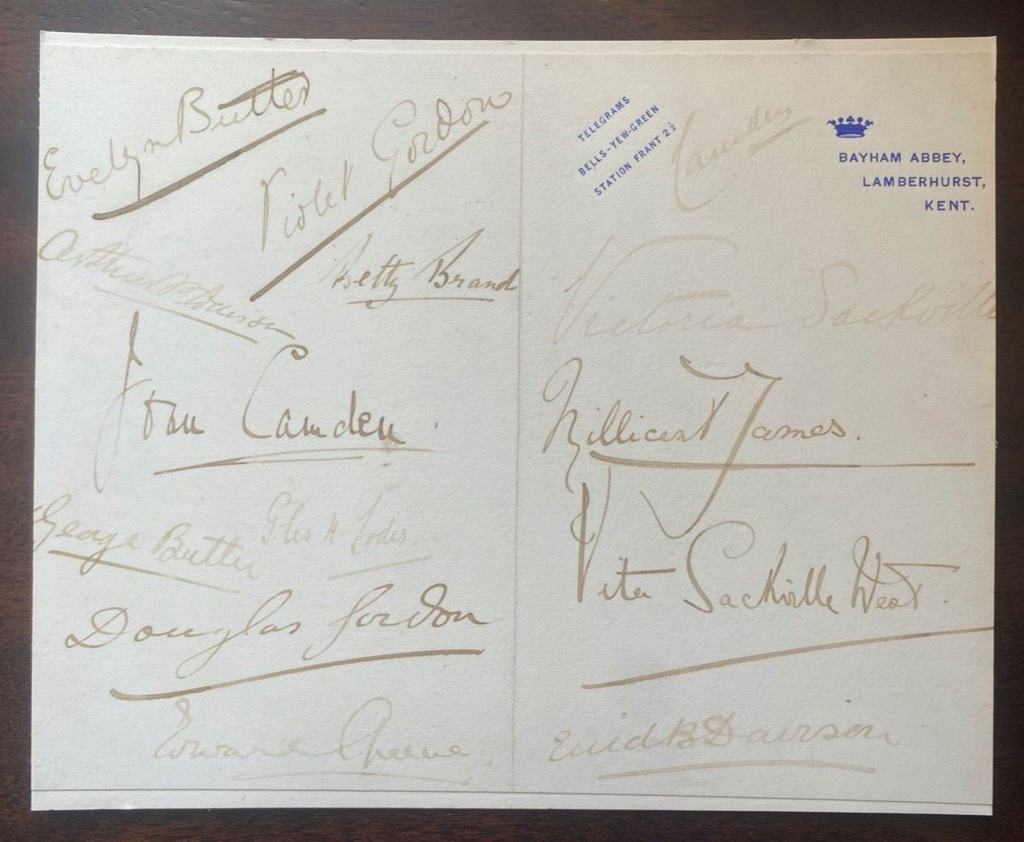 Evelyn Butter
Violet Gordon
Betty Brand
Joan Camden.
George Butter
Douglas Gordon
TELEGRAMS
BELLS-YEW-GREEN
STATION FRANT 2½
Camden
BAYHAM ABBEY,
LAMBERHURST,
KENT.
Victoria Sackville
Millicent James.
Vita Sackville West.
Enid B Davison